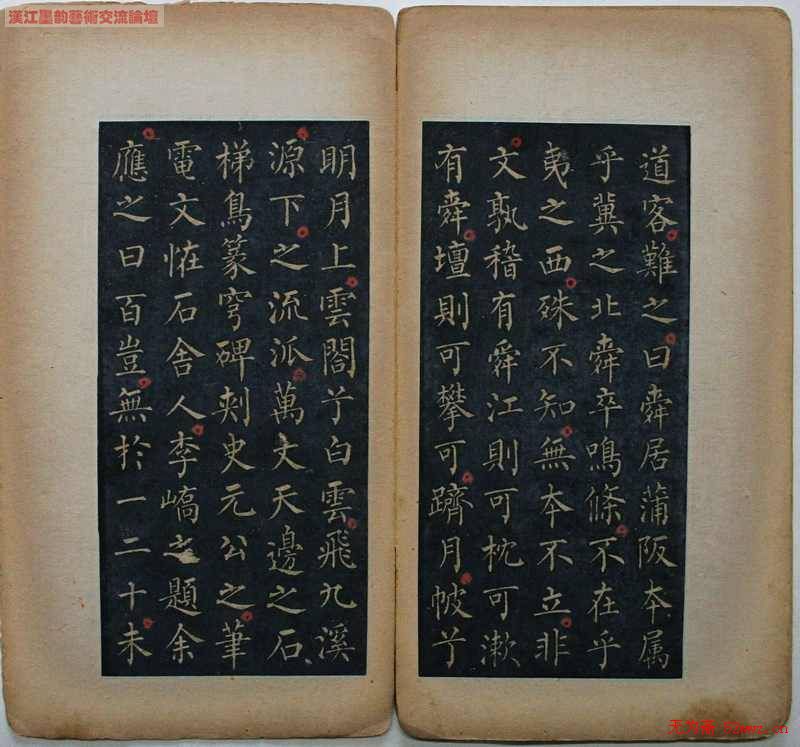 漢江墨韵藝術交流論壇
道客難之曰舜居蒲阪本属
乎冀之北舜卒鳴條不在乎
夷之西殊不知無本不立非
文孰稽有舜江則可枕可漱
有舜壇則可攀可躋月帔兮
明月上雲閣兮白雲飛九溪
源下之流派萬丈天邊之石
梯鳥篆穹碑刾史元公之筆
電文恠石舍人李嶠之題余
應之曰百豈無於一二十未